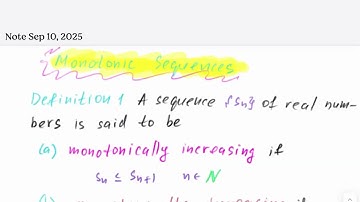 Note Sep 10, 2025
Monotonic Sequences
Definition 1 A sequence {Sn} of real num-
bers is said to be
(a) monotonically increasing if
Sn ≤ Sn+1 n ∈ N